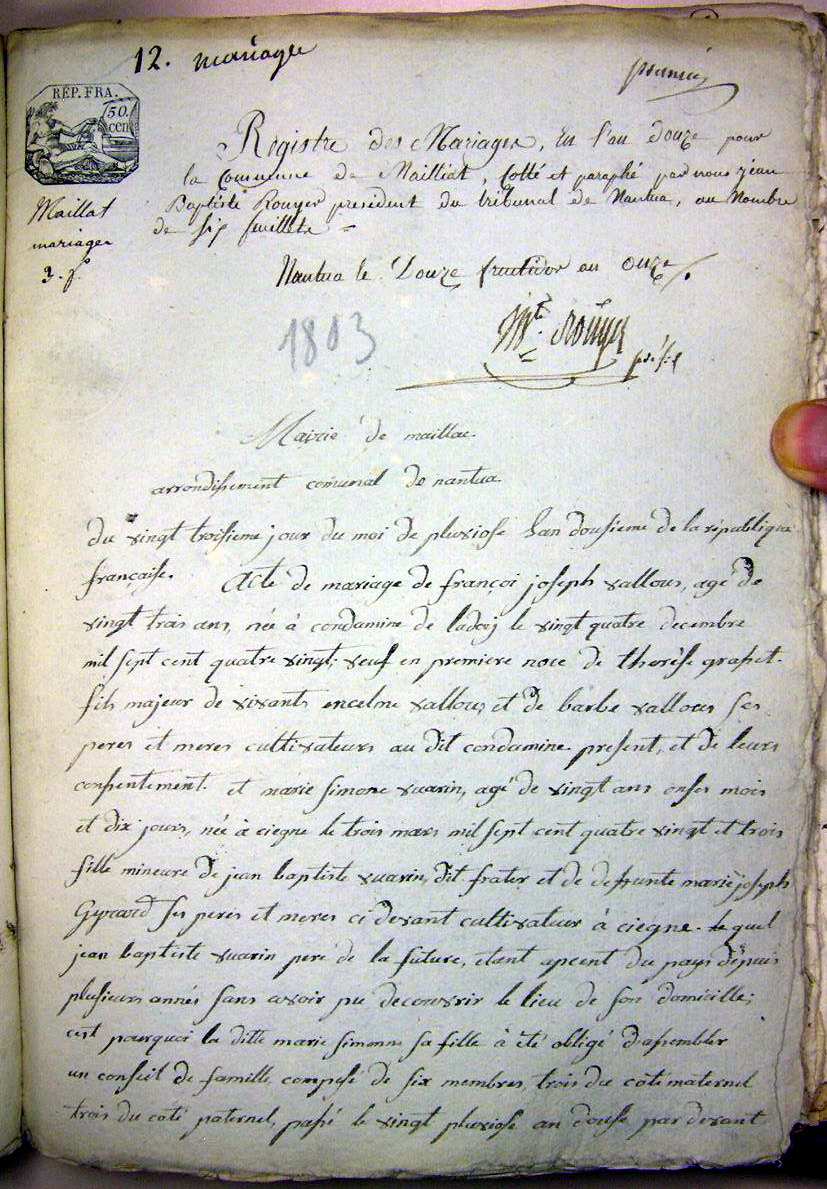 12. mariages
premier
RÉP. FRA.
50.
cen.
Registre des Mariages, En l'an Douze pour
la Commune de Mailliat, cotté et paraphé par nous jean
Baptiste Rouyer president du tribunal de Nantua, au Nombre
de six feuillets
Maillat
mariages
3.
Nantua le Douze fructidor an Onze
1803
Rouyer
présid
Mairie de maillac
arrondissement comunal de nantua
du vingt troisieme jour du moi de pluviose Lan dousieme de la république
française. Acte de mariage de françoi joseph vallous, age de
vingt trais ans, née à condamine de ladoy le vingt quatre decembre
mil sept cent quatre vingt; veuf en premiere noce de therèse grapet.
fils majeur de vivants encelme vallous et de barbe vallous ses
peres et meres cultivateurs au dit condamine present, et de leurs
consentement. et marie simone vuarin, agé de vingt ans onses mois
et dix jours, née à ciegne le trois mars mil sept cent quatre vingt et trois
fille mineure de jean baptiste vuarin, dit frater et de deffunte marie joseph
ses peres et meres ci devant cultivateur à ciegne. le quel
jean baptiste vuarin pere de la future, etant apcent du pays depuis
plusieurs annés sans avoir pu decouvrir le lieu de son domicille;
cest pourquoi la ditte marie simonne sa fille à été obligé dassembler
un conseil de famille, compose de six membres, trois du coté maternel
trois du coté paternel, passé le vingt pluviose an douse par devant